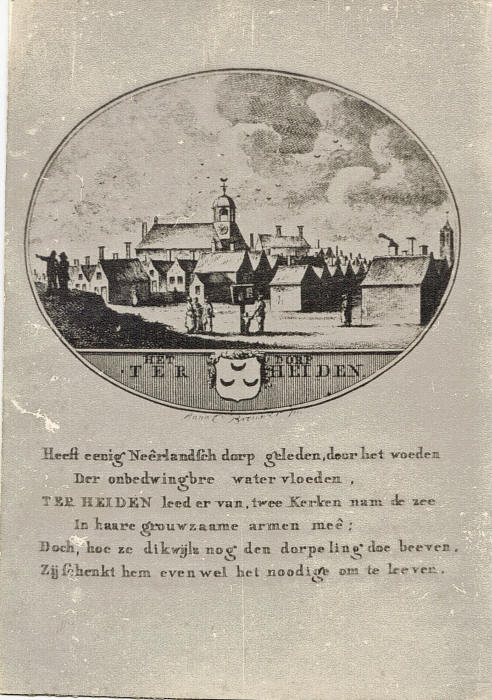 HET DORP
TER HEIDEN
Heeft eenig Neêrlandsch dorp geleden, door het woeden
Der onbedwingbre water vloeden,
TER HEIDEN leed er van, twee Kerken nam de zee
In haare grouwzaame armen meê;
Doch, hoe ze dikwijls nog den dorpeling doe beeven,
Zij schenkt hem evenwel het noodige om te leeven.